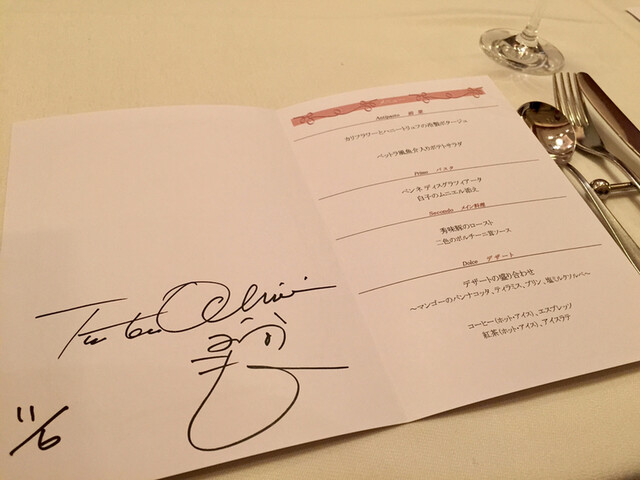 11/6
Antipasto 前菜
カリフラワーとハニートリュフの冷製ポタージュ
ペットラ風魚介入りポテトサラダ
Primo パスタ
ペンネ ディスグラツィアータ
白子のムニエル添え
Secondo メイン料理
秀味豚のロースト
二色のポルチーニ茸ソース
Dolce デザート
デザートの盛り合わせ
～マンゴーのパンナコッタ、ティラミス、プリン、塩ミルクソルベ～
コーヒー(ホット・アイス)、エスプレッソ
紅茶(ホット・アイス)、アイスラテ